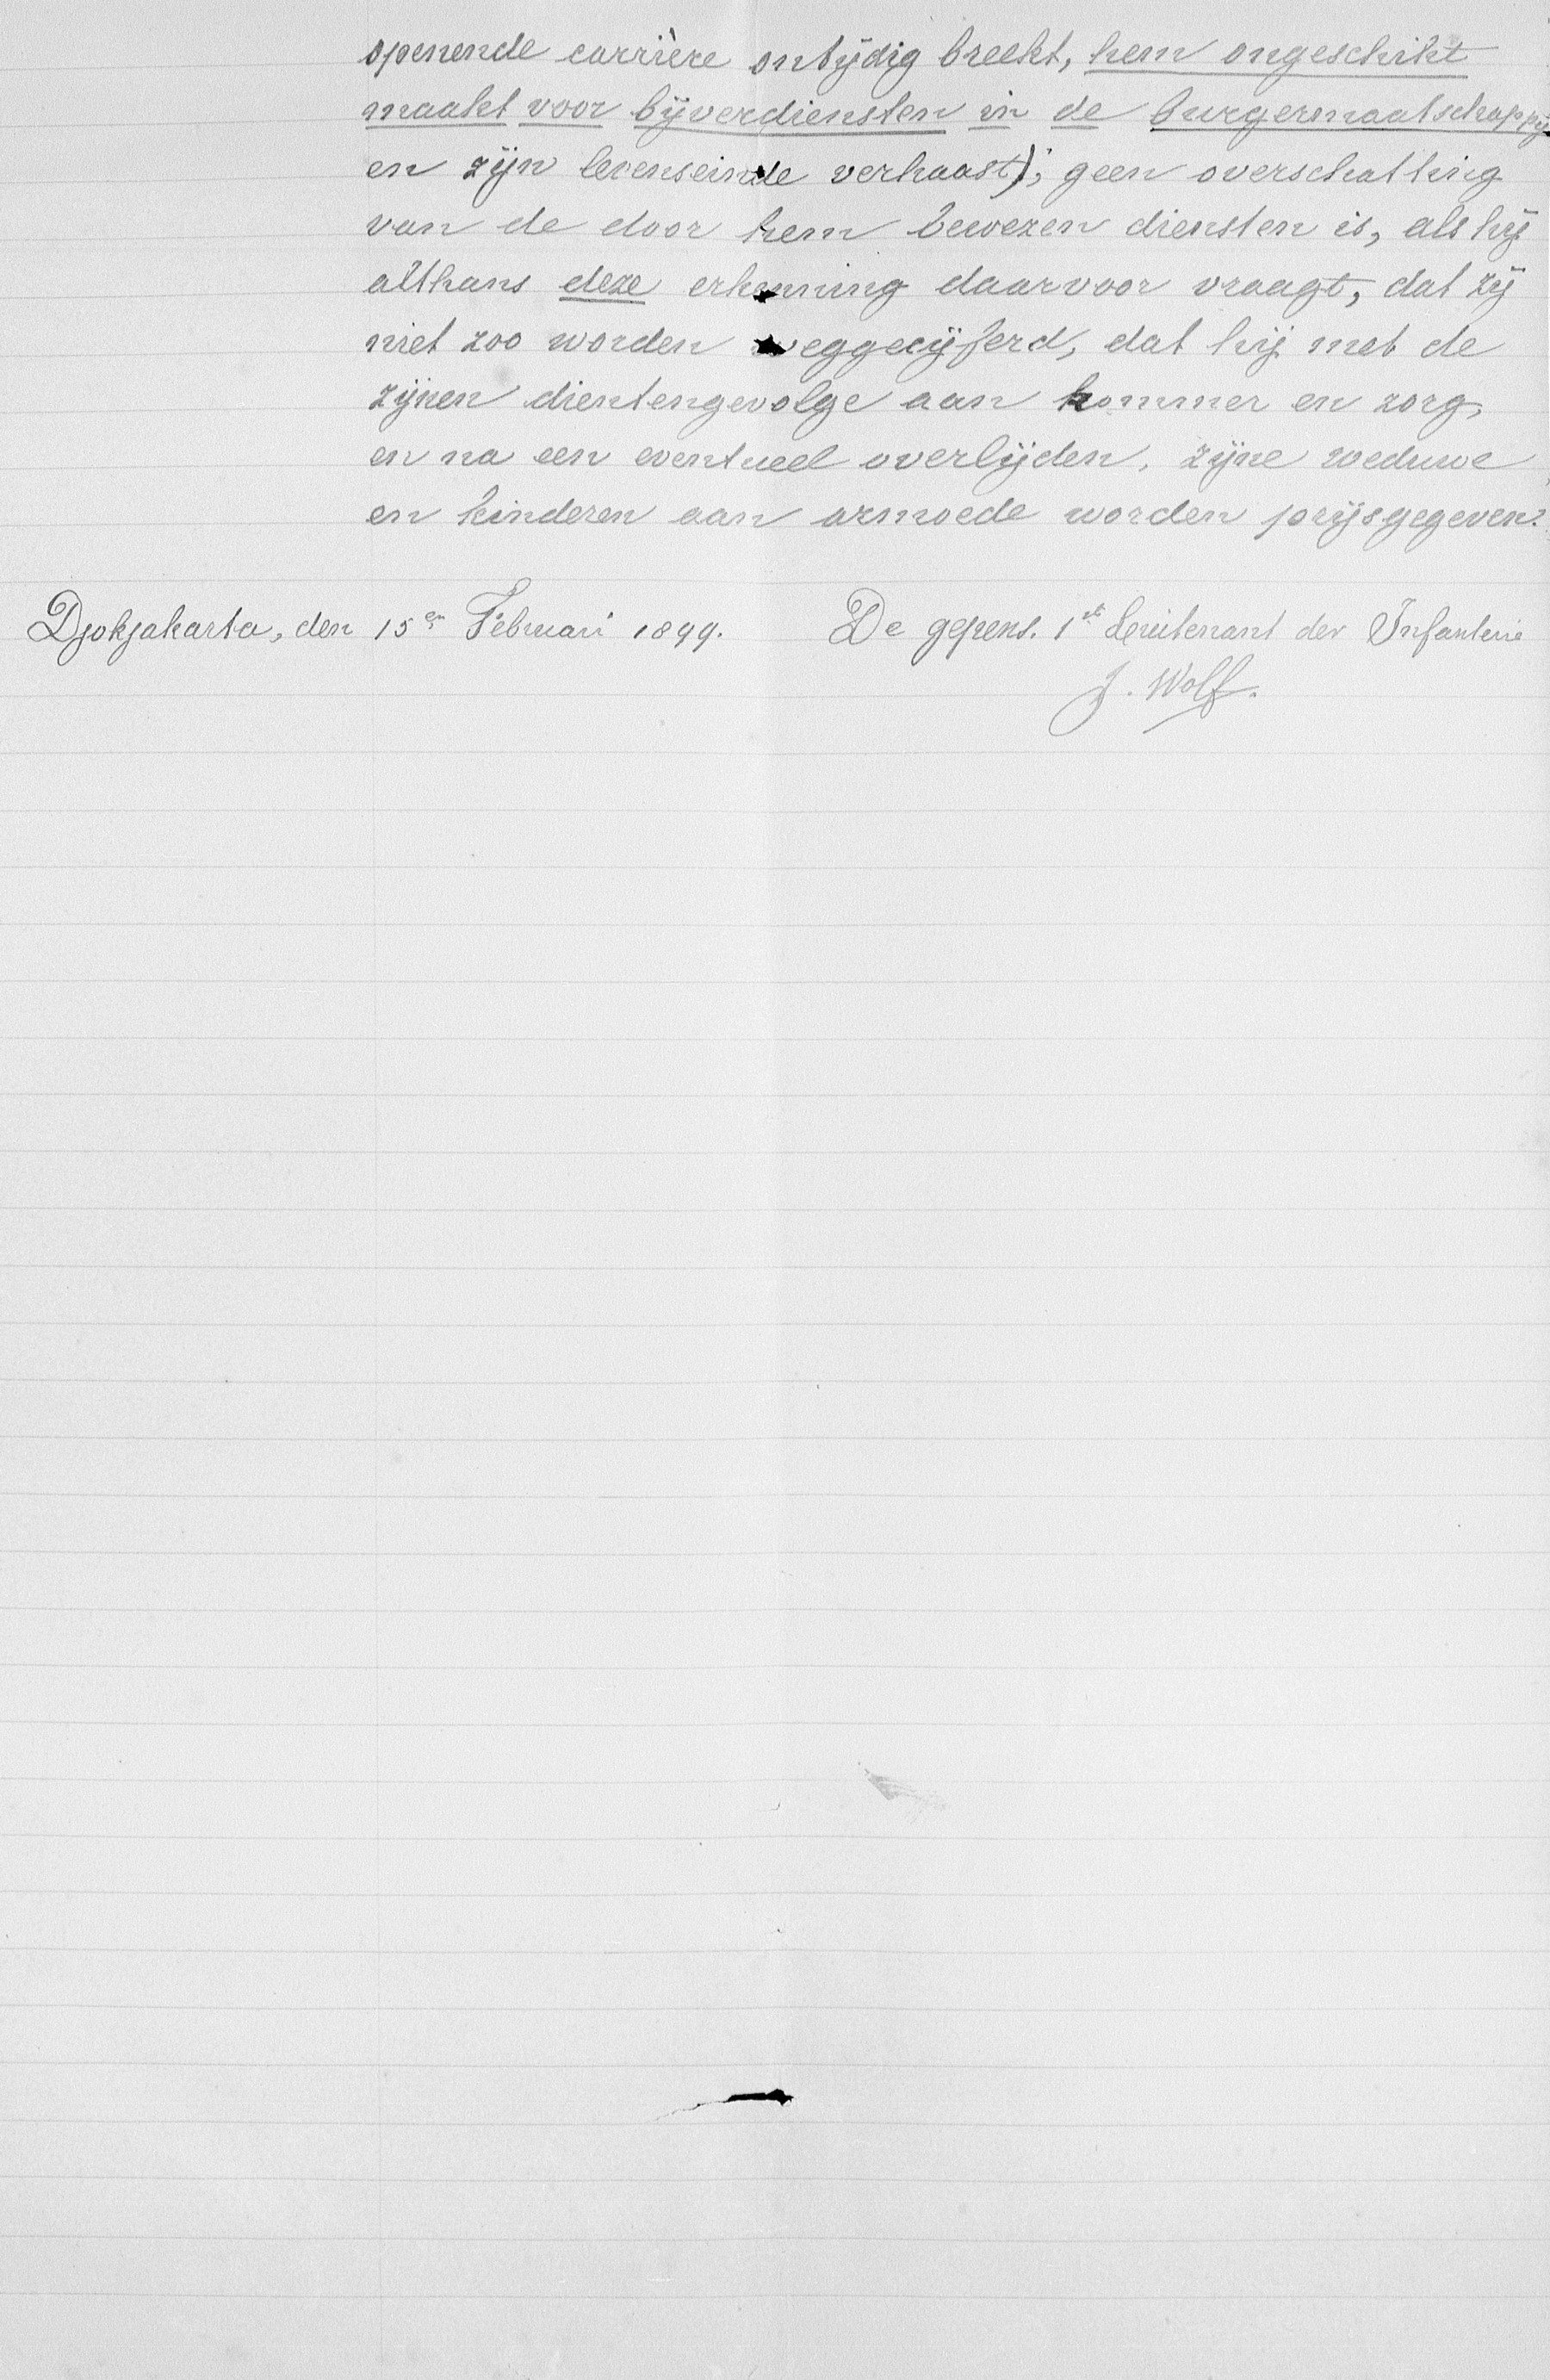 openende carrière ontijdig breekt, hem ongeschikt
maakt voor bijverdiensten in de burgermaatschappij
en zijn levenseinde verhaast); geen overschatting
van de door hem bewezen diensten is, als hij
althans deze erkenning daarvoor vraagt, dat zij
niet zoo worden weggecijferd, dat hij met de
zijnen dientengevolge aan kommer en zorg,
en na een eventueel overlijden, zijne weduwe
en kinderen aan armoede worden prijsgegeven?
Djokjakarta, den 15en Februari 1899. De gepens. 1ste Luitenant der Infanterie
J. Wolff.